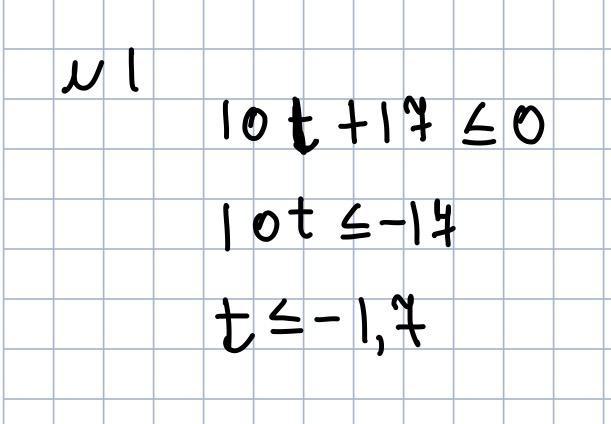 №1
10t+17≤0
10t≤-17
t≤-1,7